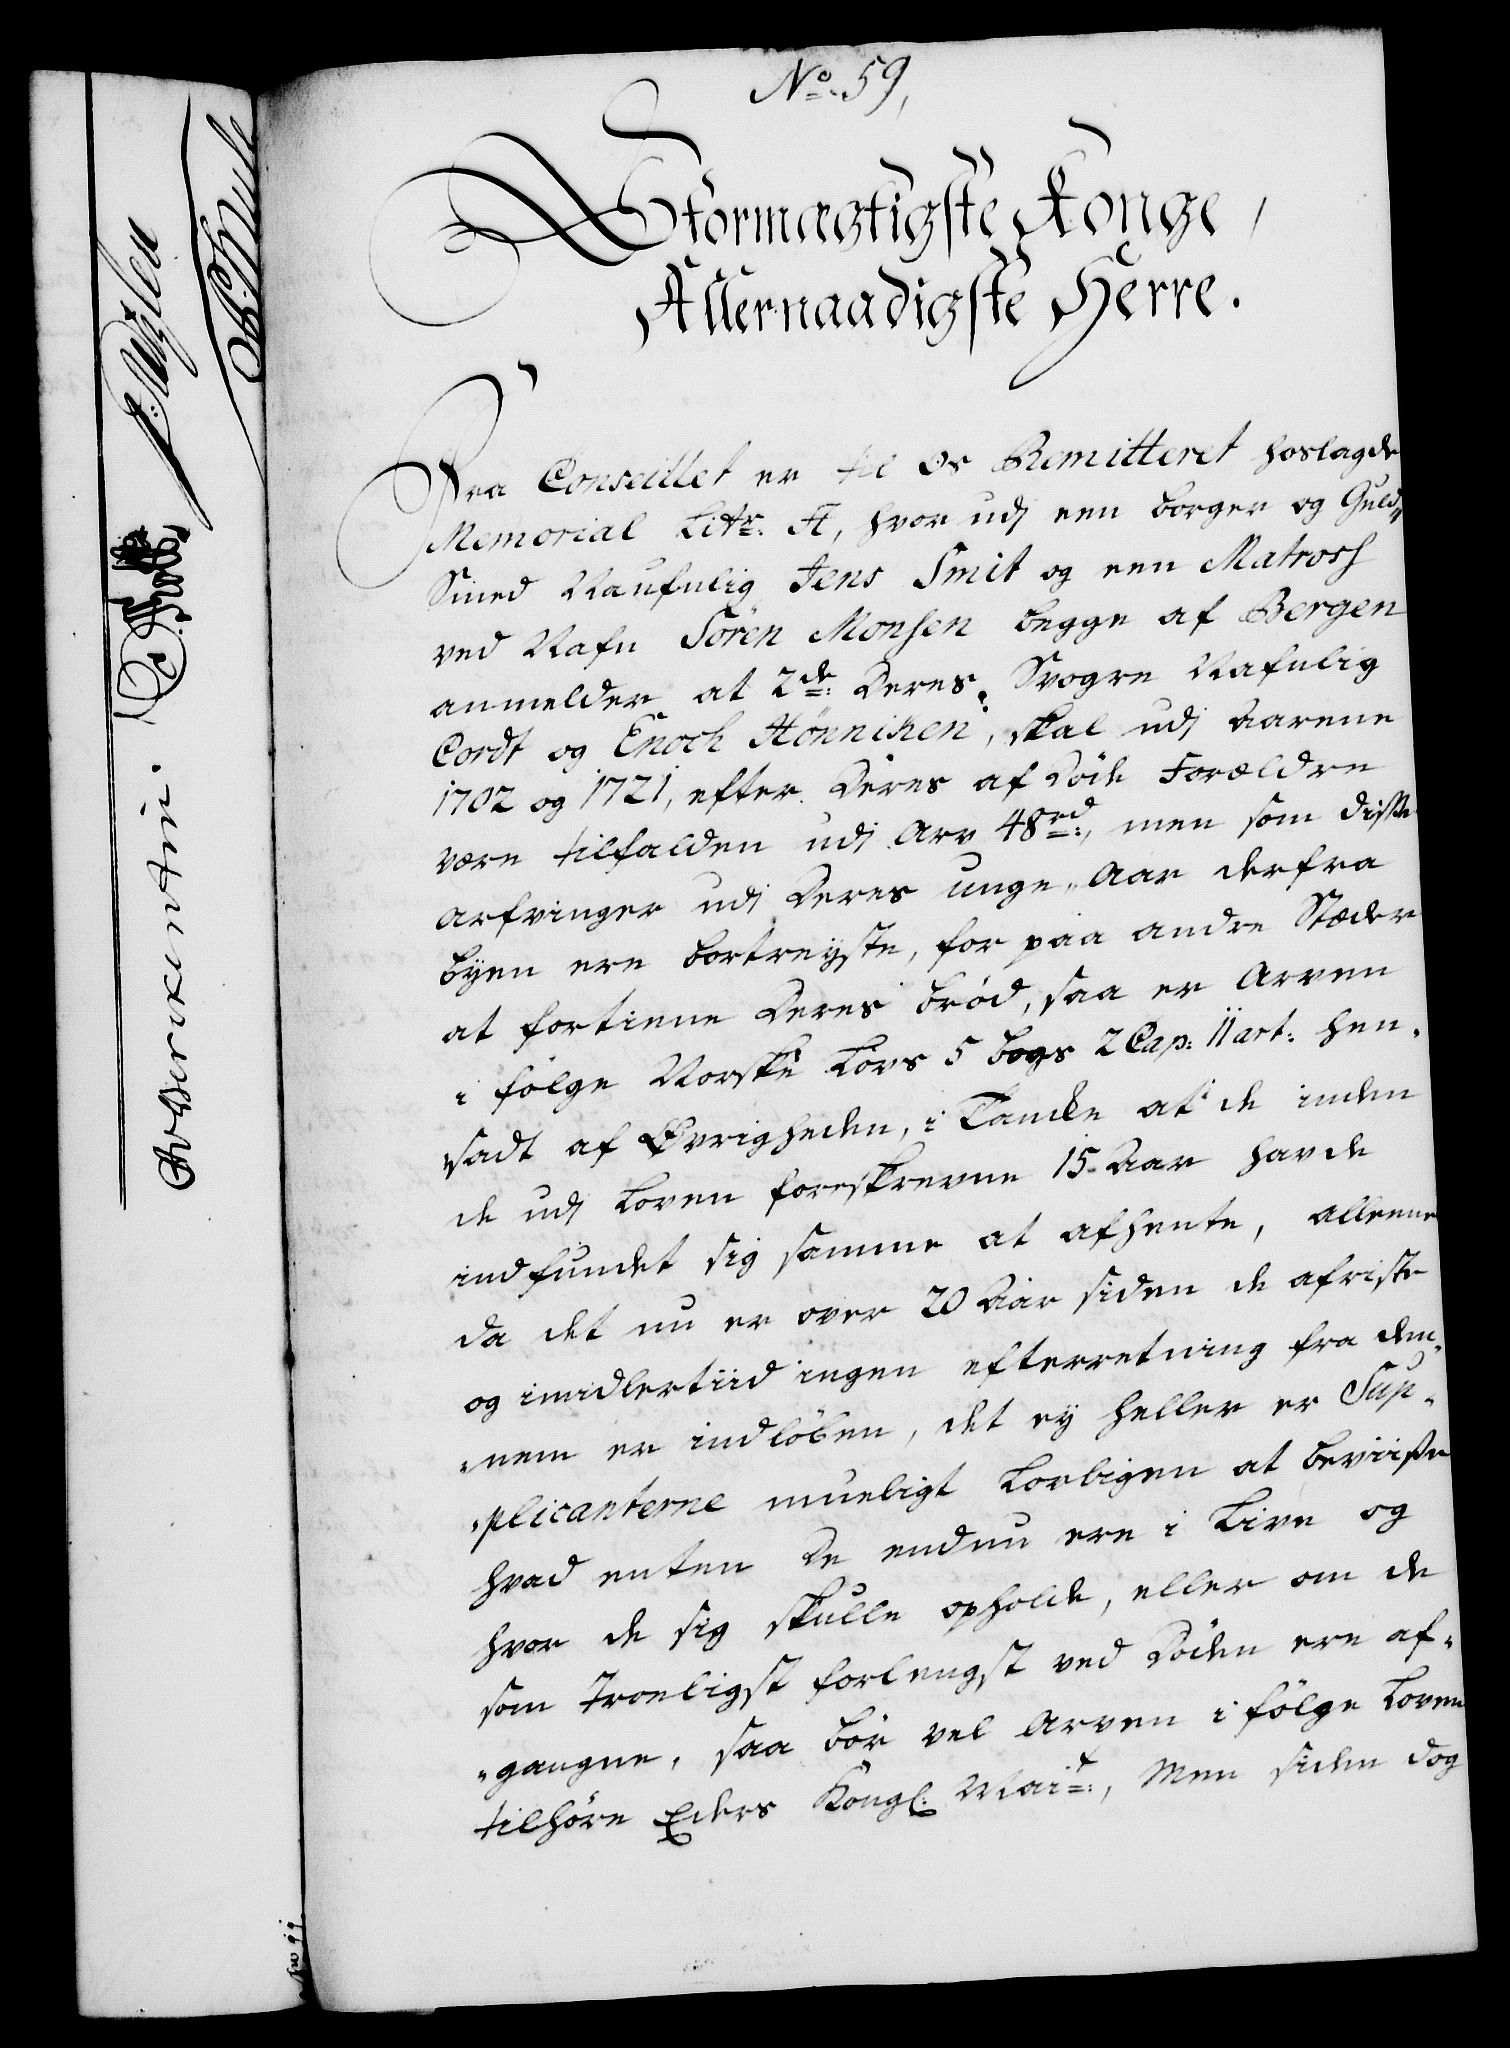 No. 59,
Stormægtigste Konge,
Allernaadigste Herre.
Fra Conseillet er til Os Remitteret hoslagde
Memorial Litr: A, hvor udj een borger og Guld„
Smed Naufnlig Jens Smit og een Matrosh
ved Nafn Sören Monsen begge af Bergen
anmelder at 2de: Deres Svogre Nafnlig
Cordt og Enoch Hönniken, skal udj Aarene
1702 og 1721, efter Deres af Döde Forældre
være tilfalden udj Arv 48rd:, men som disse
arfvinger udj Deres unge Aar derfra
byen ere bortreyste, for paa andre Stæder
at fortiene Deres bröd, saa er Arven
i fölge Norske Lovs 5 bogs 2 Cap: 11 art: hen„
sadt af Øvrigheden, i Tancke at de inden
de udj Loven foreskrevne 15 Aar havde
indfundet sig samme at afhente, alleene
da det nu er over 20 Aar siden de afriste
og imidlertiid ingen efterretning fra dem„
„nem er indlöben, det ey heller er Sup„
„plicanterne mueligt Lovligen at beviise
hvad enten De endnu ere i Live og
hvor de sig skulle opholde, eller om de
som Troeligst forlengst ved Döden ere af„
„gangne, saa bör vel Arven i fölge Loven
tilhöre Eders Kongl: Mait:, Men siden dog